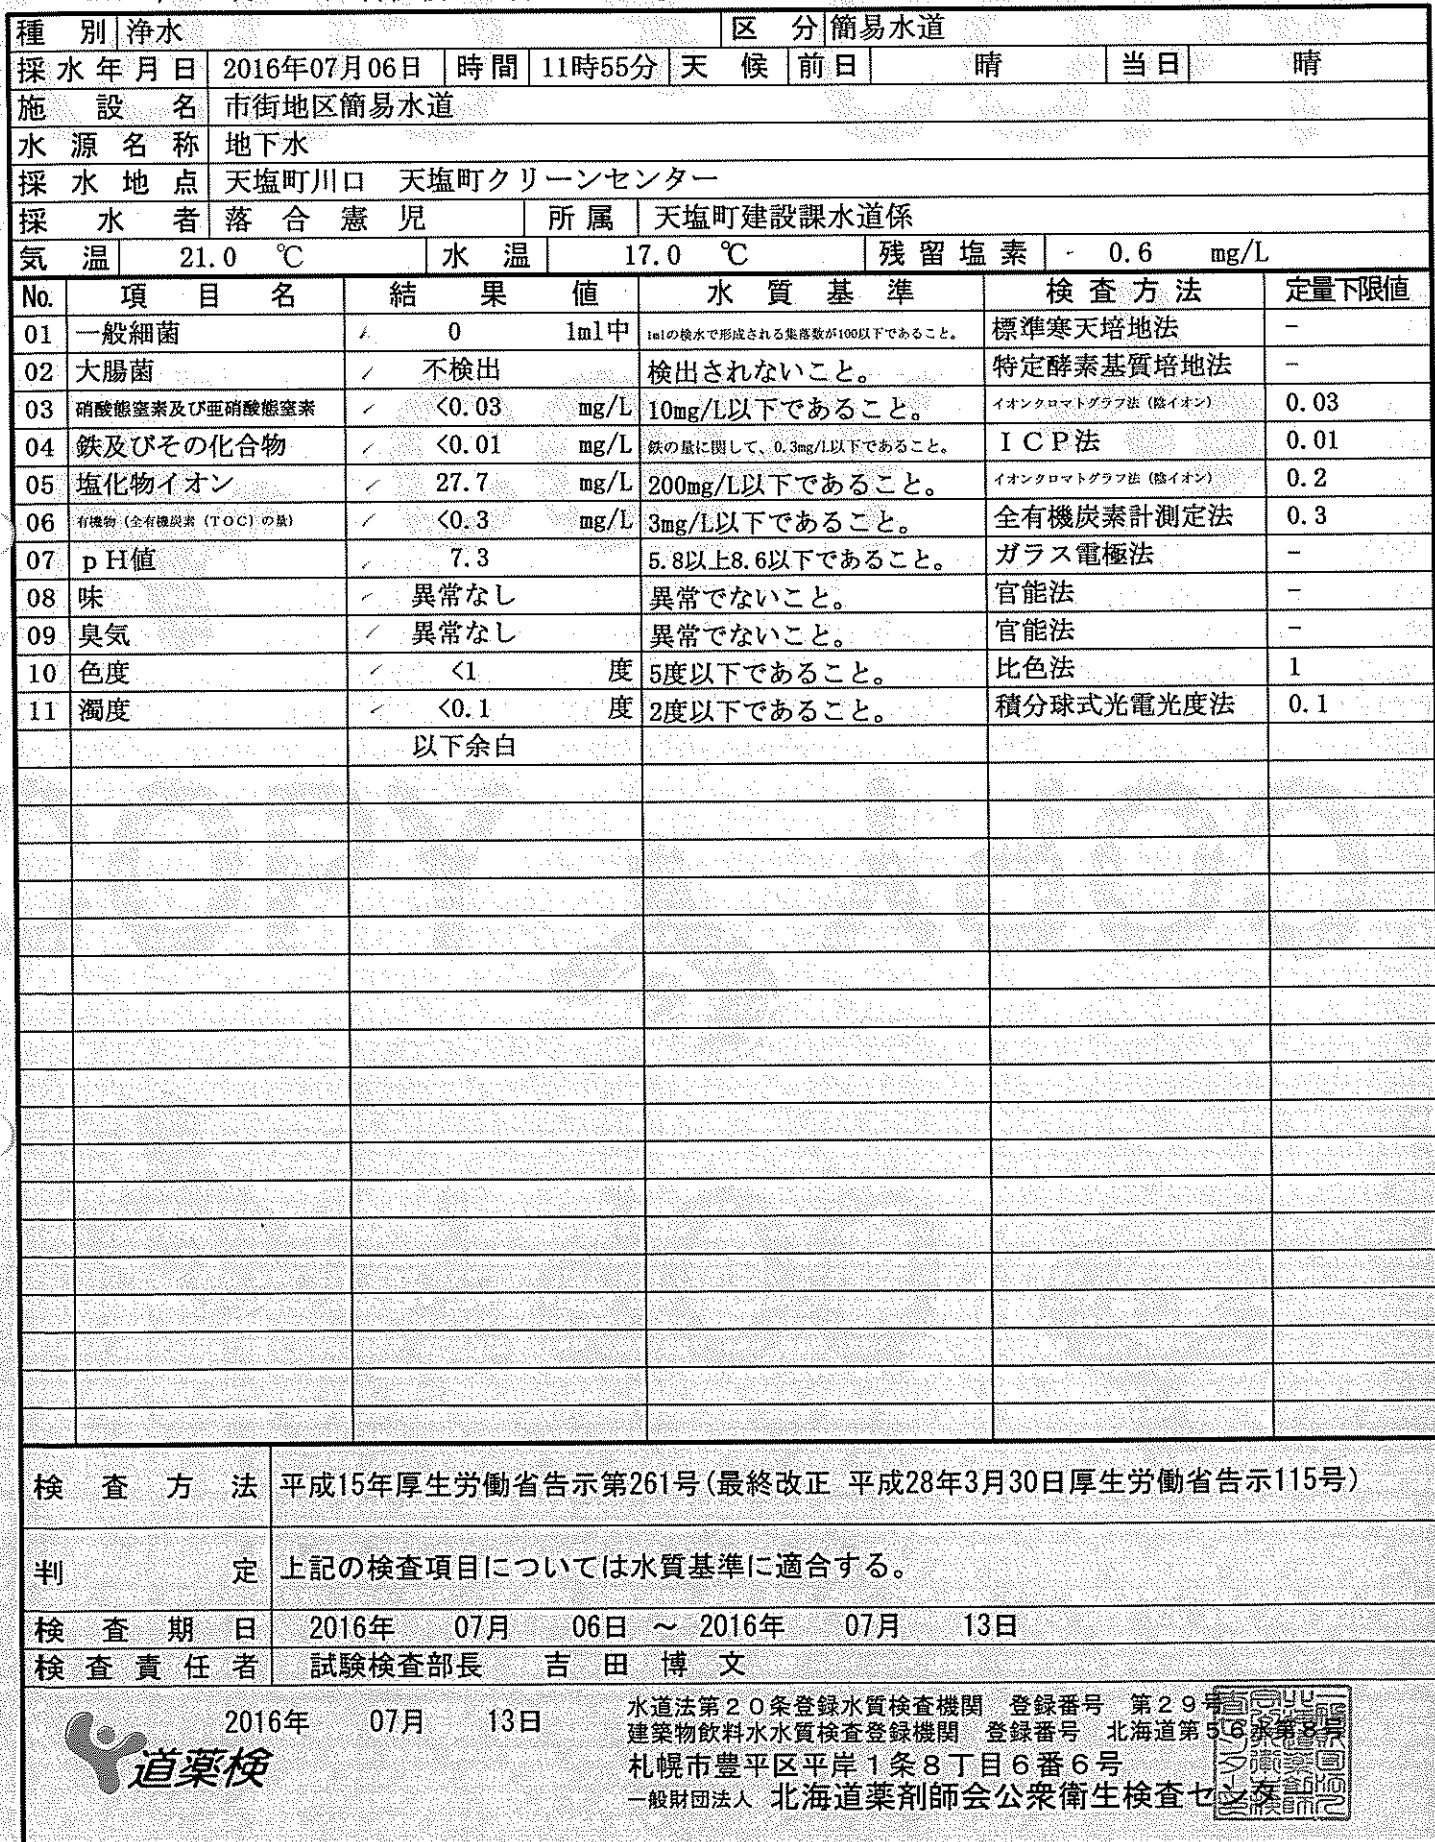 種別 浄水 区分 簡易水道
採水年月日 2016年07月06日 時間 11時55分 天候 前日 晴 当日 晴
施設名 市街地区簡易水道
水源名称 地下水
採水地点 天塩町川口 天塩町クリーンセンター
採水者 落合憲児 所属 天塩町建設課水道係
気温 21.0 ℃ 水温 17.0 ℃ 残留塩素 0.6 mg/L
No. 項目名 結果値 水質基準 検査方法 定量下限値
01 一般細菌 0 1ml中 1mlの検水で形成される集落数が100以下であること。 標準寒天培地法 −
02 大腸菌 不検出 検出されないこと。 特定酵素基質培地法 −
03 硝酸態窒素及び亜硝酸態窒素 <0.03 mg/L 10mg/L以下であること。 イオンクロマトグラフ法（陰イオン） 0.03
04 鉄及びその化合物 <0.01 mg/L 鉄の量に関して、0.3mg/L以下であること。 ＩＣＰ法 0.01
05 塩化物イオン 27.7 mg/L 200mg/L以下であること。 イオンクロマトグラフ法（陰イオン） 0.2
06 有機物（全有機炭素（TOC）の量） <0.3 mg/L 3mg/L以下であること。 全有機炭素計測定法 0.3
07 ｐH値 7.3 5.8以上8.6以下であること。 ガラス電極法 −
08 味 異常なし 異常でないこと。 官能法 −
09 臭気 異常なし 異常でないこと。 官能法 −
10 色度 <1 度 5度以下であること。 比色法 1
11 濁度 <0.1 度 2度以下であること。 積分球式光電光度法 0.1
以下余白
検査方法 平成15年厚生労働省告示第261号(最終改正 平成28年3月30日厚生労働省告示115号)
判定 上記の検査項目については水質基準に適合する。
検査期日 2016年 07月 06日 ～ 2016年 07月 13日
検査責任者 試験検査部長 吉田博文
2016年 07月 13日
道薬検
水道法第２０条登録水質検査機関 登録番号 第２９号
建築物飲料水水質検査登録機関 登録番号 北海道第５６水第８号
札幌市豊平区平岸１条８丁目６番６号
一般財団法人 北海道薬剤師会公衆衛生検査センター